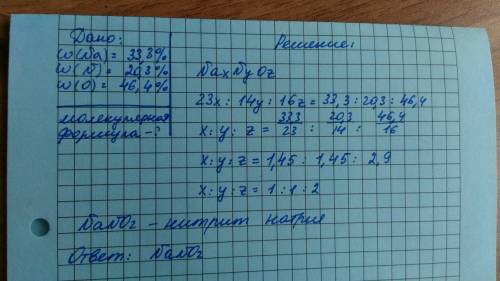 Дано:
W(Na) = 33,3%
W(N) = 20,3%
W(O) = 46,4%
молекулярная
формула - ?
Решение:
NaxNyOz
23x : 14y : 16z = 33,3 : 20,3 : 46,4
x : y : z = 33,3/23 : 20,3/14 : 46,4/16
x : y : z = 1,45 : 1,45 : 2,9
x : y : z = 1 : 1 : 2
NaNO2 - нитрит натрия
Ответ: NaNO2